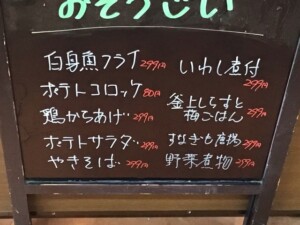 おそうざい
白身魚フライ 299円
ポテトコロッケ 80円
鶏からあげ 299円
ポテトサラダ 299円
やきそば 299円
いわし煮付 299円
釜上しらすと
梅ごはん 299円
すなぎも唐揚 299円
野菜煮物 299円